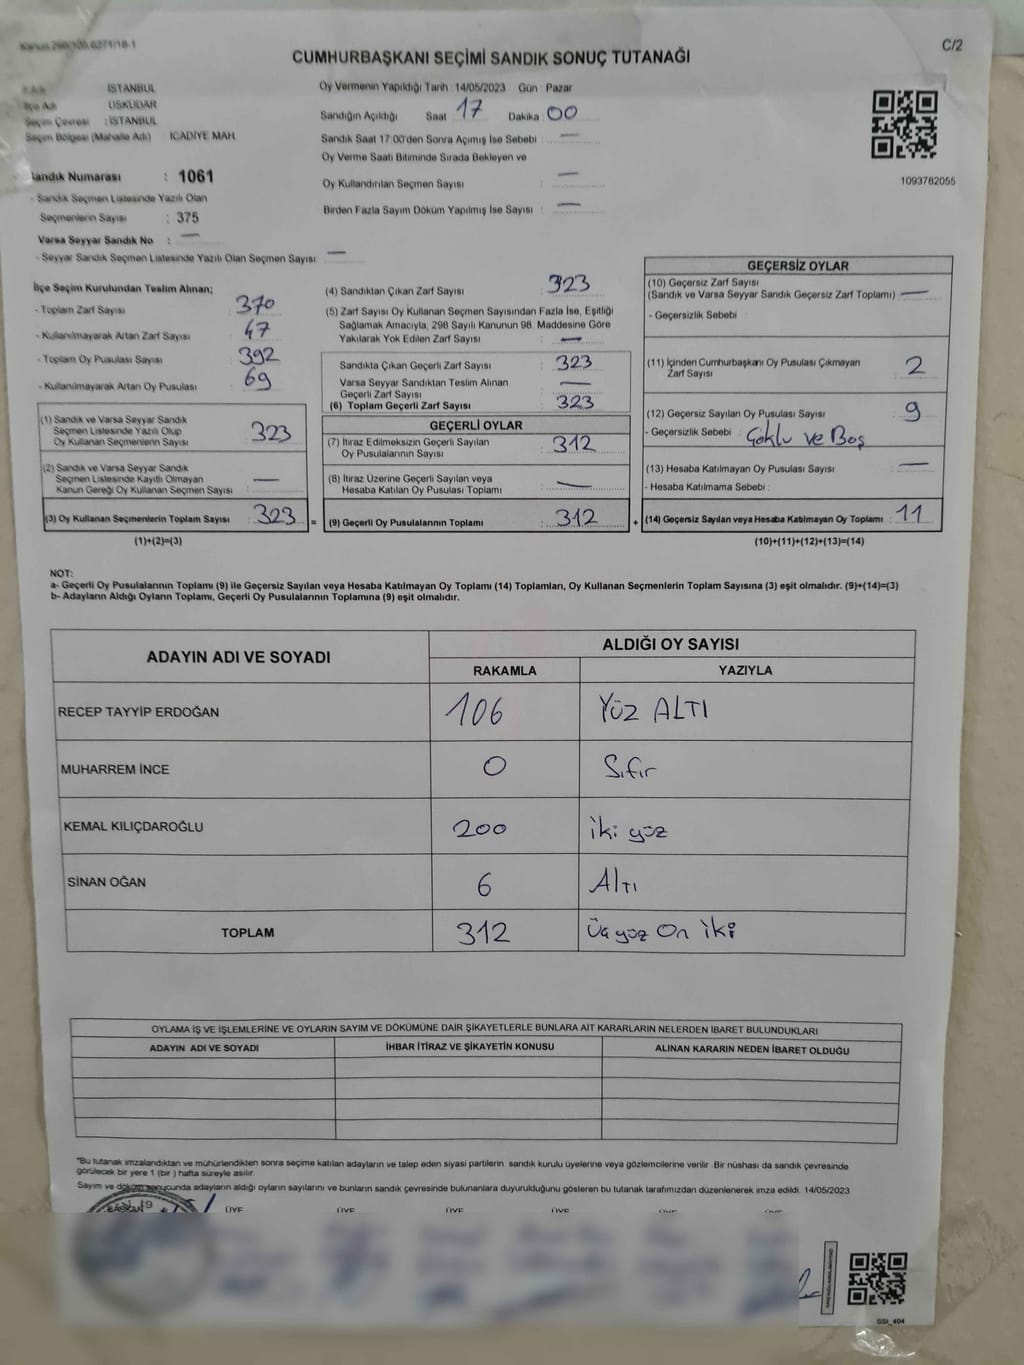 Kanun 298/105.6271/18-1
C/2
CUMHURBAŞKANI SEÇİMİ SANDIK SONUÇ TUTANAĞI
İl Adı İSTANBUL
İlçe Adı ÜSKÜDAR
Seçim Çevresi : İSTANBUL
Seçim Bölgesi (Mahalle Adı) İCADİYE MAH.
Sandık Numarası : 1061
- Sandık Seçmen Listesinde Yazılı Olan
Seçmenlerin Sayısı : 375
Varsa Seyyar Sandık No : —
- Seyyar Sandık Seçmen Listesinde Yazılı Olan Seçmen Sayısı: —
Oy Vermenin Yapıldığı Tarih : 14/05/2023 Gün : Pazar
Sandığın Açıldığı Saat 17 Dakika 00
Sandık Saat 17:00'den Sonra Açımış İse Sebebi : —
Oy Verme Saati Bitiminde Sırada Bekleyen ve
Oy Kullandırılan Seçmen Sayısı : —
Birden Fazla Sayım Döküm Yapılmış İse Sayısı : —
1093762055
İlçe Seçim Kurulundan Teslim Alınan;
- Toplam Zarf Sayısı : 370
- Kullanılmayarak Artan Zarf Sayısı : 47
- Toplam Oy Pusulası Sayısı : 392
- Kullanılmayarak Artan Oy Pusulası : 69
(1) Sandık ve Varsa Seyyar Sandık
Seçmen Listesinde Yazılı Olup
Oy Kullanan Seçmenlerin Sayısı : 323
(2) Sandık ve Varsa Seyyar Sandık
Seçmen Listesinde Kayıtlı Olmayan
Kanun Gereği Oy Kullanan Seçmen Sayısı : —
(3) Oy Kullanan Seçmenlerin Toplam Sayısı : 323 =
(1)+(2)=(3)
(4) Sandıktan Çıkan Zarf Sayısı : 323
(5) Zarf Sayısı Oy Kullanan Seçmen Sayısından Fazla İse, Eşitliği
Sağlamak Amacıyla; 298 Sayılı Kanunun 98. Maddesine Göre
Yakılarak Yok Edilen Zarf Sayısı : —
Sandıkta Çıkan Geçerli Zarf Sayısı : 323
Varsa Seyyar Sandıktan Teslim Alınan
Geçerli Zarf Sayısı : —
(6) Toplam Geçerli Zarf Sayısı : 323
GEÇERLİ OYLAR
(7) İtiraz Edilmeksizin Geçerli Sayılan
Oy Pusulalarının Sayısı : 312
(8) İtiraz Üzerine Geçerli Sayılan veya
Hesaba Katılan Oy Pusulası Toplamı : —
(9) Geçerli Oy Pusulalarının Toplamı : 312 +
GEÇERSİZ OYLAR
(10) Geçersiz Zarf Sayısı
(Sandık ve Varsa Seyyar Sandık Geçersiz Zarf Toplamı) : —
- Geçersizlik Sebebi :
(11) İçinden Cumhurbaşkanı Oy Pusulası Çıkmayan
Zarf Sayısı : 2
(12) Geçersiz Sayılan Oy Pusulası Sayısı : 9
- Geçersizlik Sebebi : Çoklu ve Boş
(13) Hesaba Katılmayan Oy Pusulası Sayısı : —
- Hesaba Katılmama Sebebi :
(14) Geçersiz Sayılan veya Hesaba Katılmayan Oy Toplamı : 11
(10)+(11)+(12)+(13)=(14)
NOT:
a- Geçerli Oy Pusulalarının Toplamı (9) ile Geçersiz Sayılan veya Hesaba Katılmayan Oy Toplamı (14) Toplamları, Oy Kullanan Seçmenlerin Toplam Sayısına (3) eşit olmalıdır. (9)+(14)=(3)
b- Adayların Aldığı Oyların Toplamı, Geçerli Oy Pusulalarının Toplamına (9) eşit olmalıdır.
ADAYIN ADI VE SOYADI
ALDIĞI OY SAYISI
RAKAMLA YAZIYLA
RECEP TAYYİP ERDOĞAN 106 YÜZ ALTI
MUHARREM İNCE 0 Sıfır
KEMAL KILIÇDAROĞLU 200 iki yüz
SİNAN OĞAN 6 Altı
TOPLAM 312 Üç yüz On iki
OYLAMA İŞ VE İŞLEMLERİNE VE OYLARIN SAYIM VE DÖKÜMÜNE DAİR ŞİKAYETLERLE BUNLARA AİT KARARLARIN NELERDEN İBARET BULUNDUKLARI
ADAYIN ADI VE SOYADI İHBAR İTİRAZ VE ŞİKAYETİN KONUSU ALINAN KARARIN NEDEN İBARET OLDUĞU
*Bu tutanak imzalandıktan ve mühürlendikten sonra seçime katılan adayların ve talep eden siyasi partilerin sandık kurulu üyelerine veya gözlemcilerine verilir. Bir nüshası da sandık çevresinde
görülecek bir yere 1 (bir) hafta süreyle asılır.
Sayım ve döküm sonucunda adayların aldığı oyların sayılarını ve bunların sandık çevresinde bulunanlara duyurulduğunu gösteren bu tutanak tarafımızdan düzenlenerek imza edildi. 14/05/2023
BAŞKAN ÜYE ÜYE ÜYE ÜYE
SSI_404